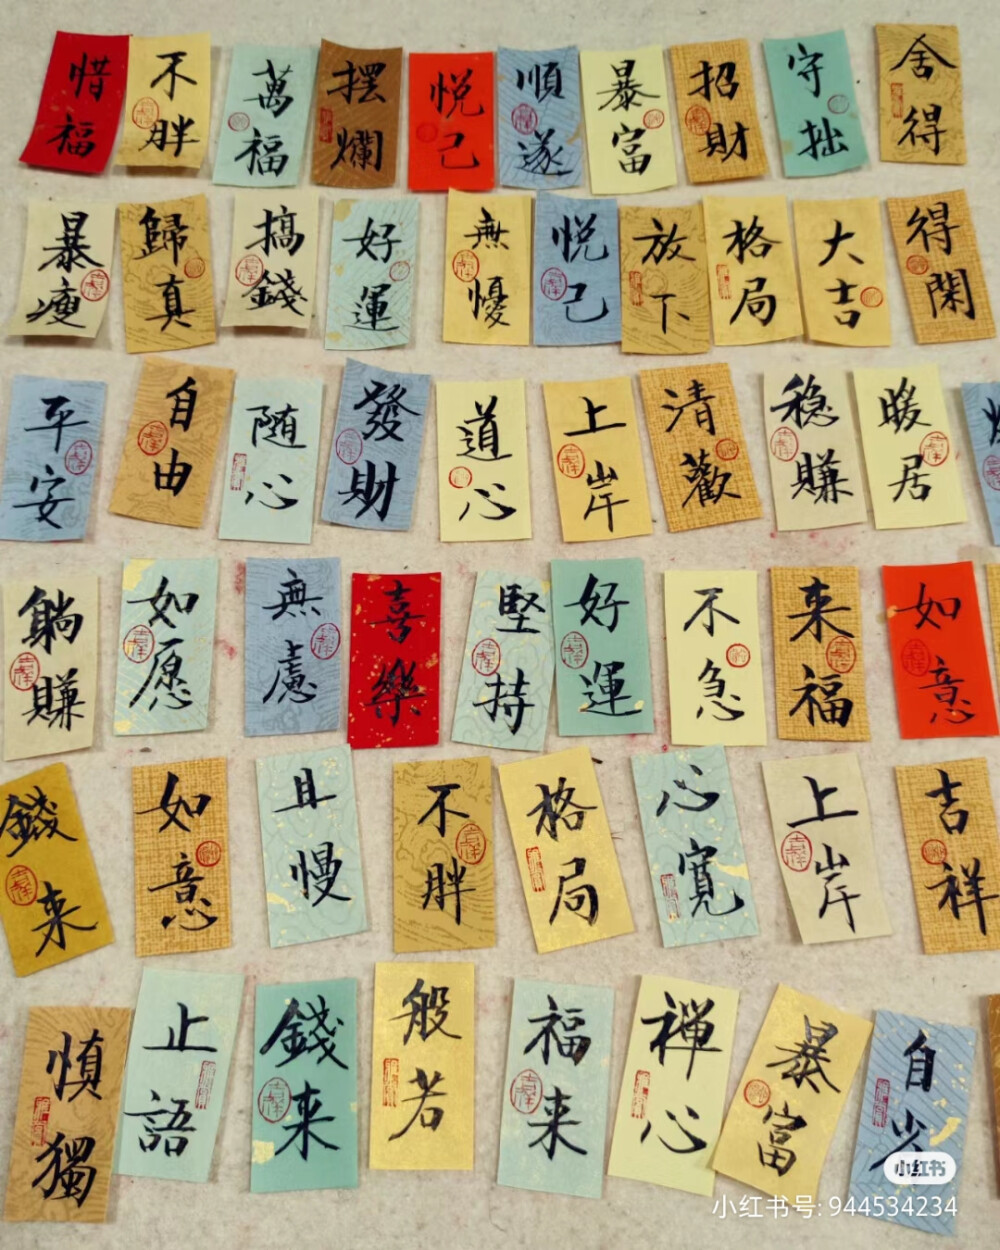 惜福
不胖
萬福
摆爛
悦己
順遂
暴富
招財
守拙
舍得
暴瘦
歸真
搞錢
好運
無憂
悦己
放下
格局
大吉
得閑
平安
自由
随心
發財
道心
上岸
清歡
稳賺
暖居
躺賺
如愿
無慮
喜樂
堅持
好運
不急
来福
如意
錢来
如意
且慢
不胖
格局
心寬
上岸
吉祥
慎獨
止語
錢来
般若
福来
禅心
暴富
自
小红书
小红书号: 944534234